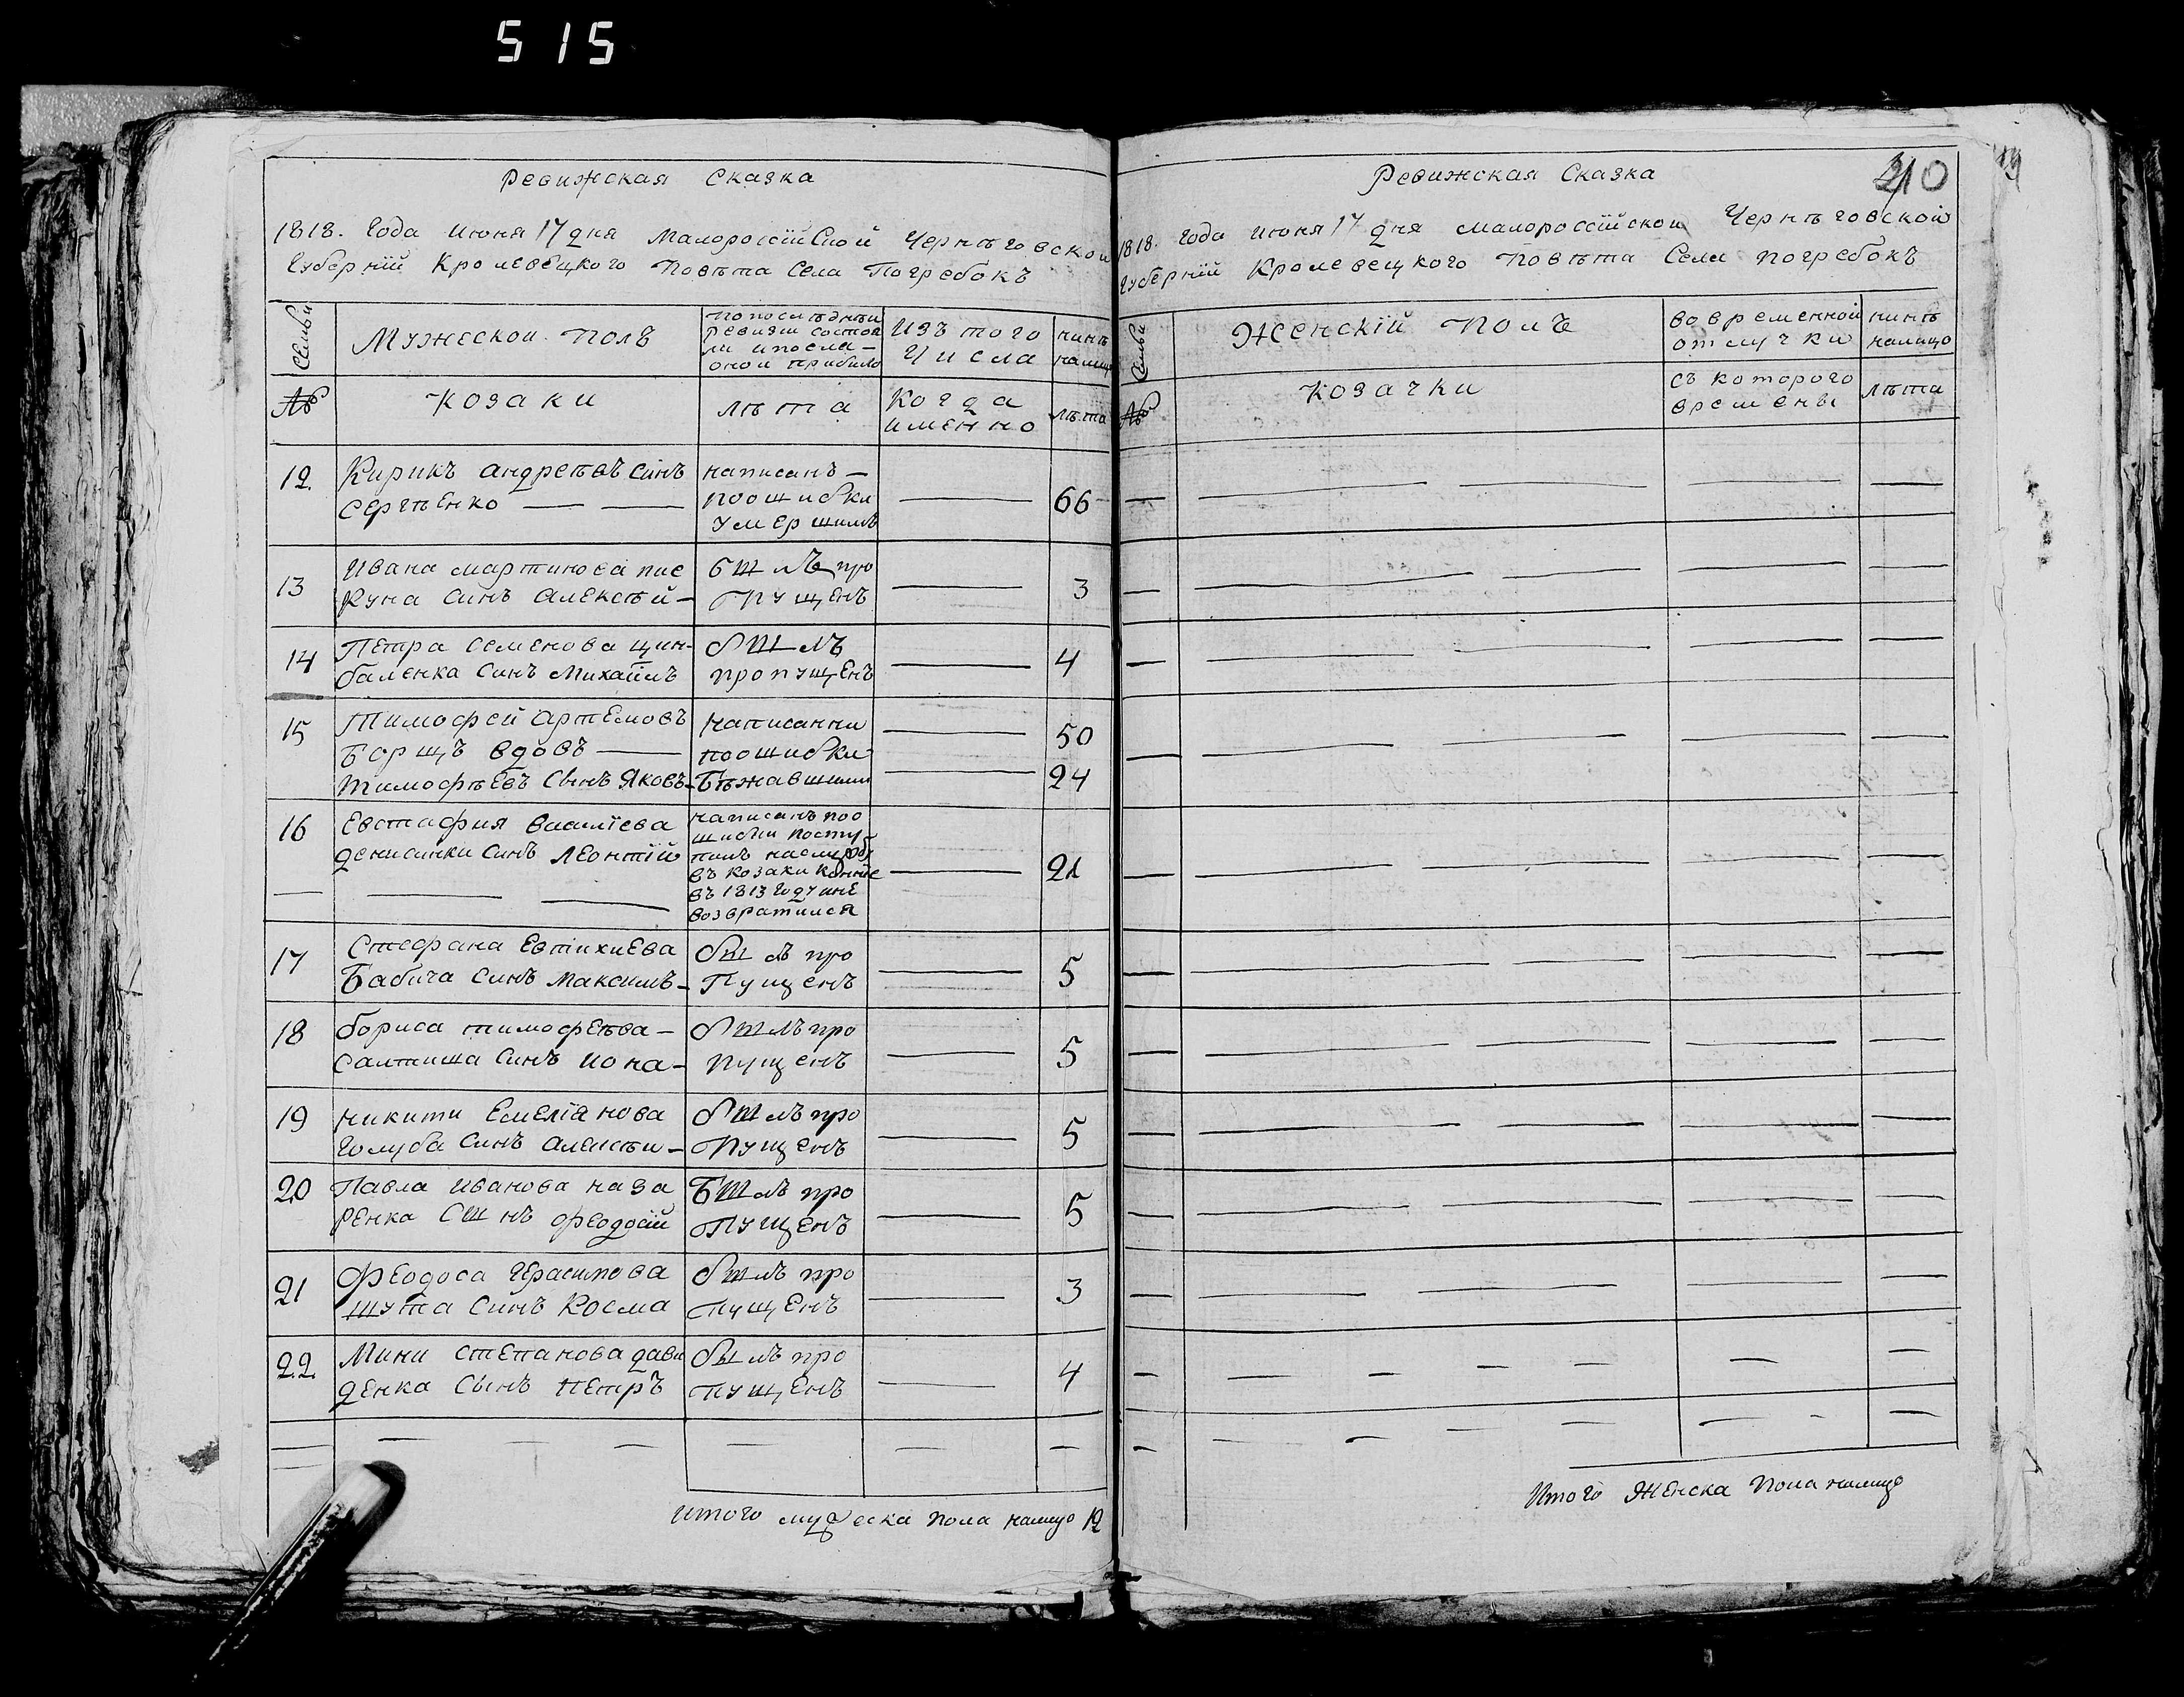 515
Ревижская Сказка
1818. Года Июня 17 дня Малороссійской Черниговской
Губерніи Кролевецкого Повѣта Села Погребокъ
Семьи
Мужескои Полъ
По последнеи
ревизии состоя
ли и после
онои прибило
Изъ того
Числа
нинѣ
налицо
№
козаки
лѣта
Когда
именно
лѣта
12. Кирикъ андреевъ синъ
Сергѣенко
написанъ
поошибки
умершимъ
66
13 Ивана мартинова пис
куна синъ алексѣй
билъ про
пущенъ
3
14 Петра семенова цин-
баленка синъ Михаилъ
билъ
пропущенъ
4
15 Тимофей артемовъ
Борщъ вдовъ
Тимофѣевъ сынъ Яковъ
написанни
поошибки
Бѣжавшими
50
24
16 Евстафия василіева
денисенки синъ леонтій
написанъ поо
шибки посту
въ козаки конніе
въ 1813 году ине
возвратился
21
17 Стефана Евтихиева
Бабича синъ максимъ
билъ про
пущенъ
5
18 бориса тимофѣева
салтиша синъ иона
билъ про
пущенъ
5
19 никити Емеліянова
голуба синъ алексѣи
билъ про
пущенъ
5
20 Павла иванова наза
ренка сынъ феодосій
Былъ про
пущенъ
5
21 Феодоса герасимова
шута синъ косма
былъ про
пущенъ
3
22. Мини степанова дави
денка сынъ петръ
былъ про
пущенъ
4
итого мужеска пола налицо 12
Ревижская Сказка
210
1818. года июня 17 дня малороссійскои Черниговской
губерніи Кролевецкого Повѣта Села погребокъ
Семьи
Женскій Полъ
во временной
отлучки
нинѣ
налицо
№
козачки
съ которого
времены
лѣта
Итого Женска Пола налицо